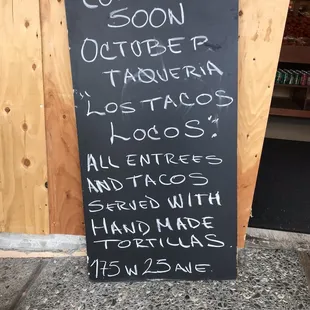 SOON
OCTOBER
TAQUERIA
"LOS TACOS
LOCOS".
ALL ENTREES
AND TACOS
SERVED WITH
HAND MADE
TORTILLAS
175 W 25 AVE.